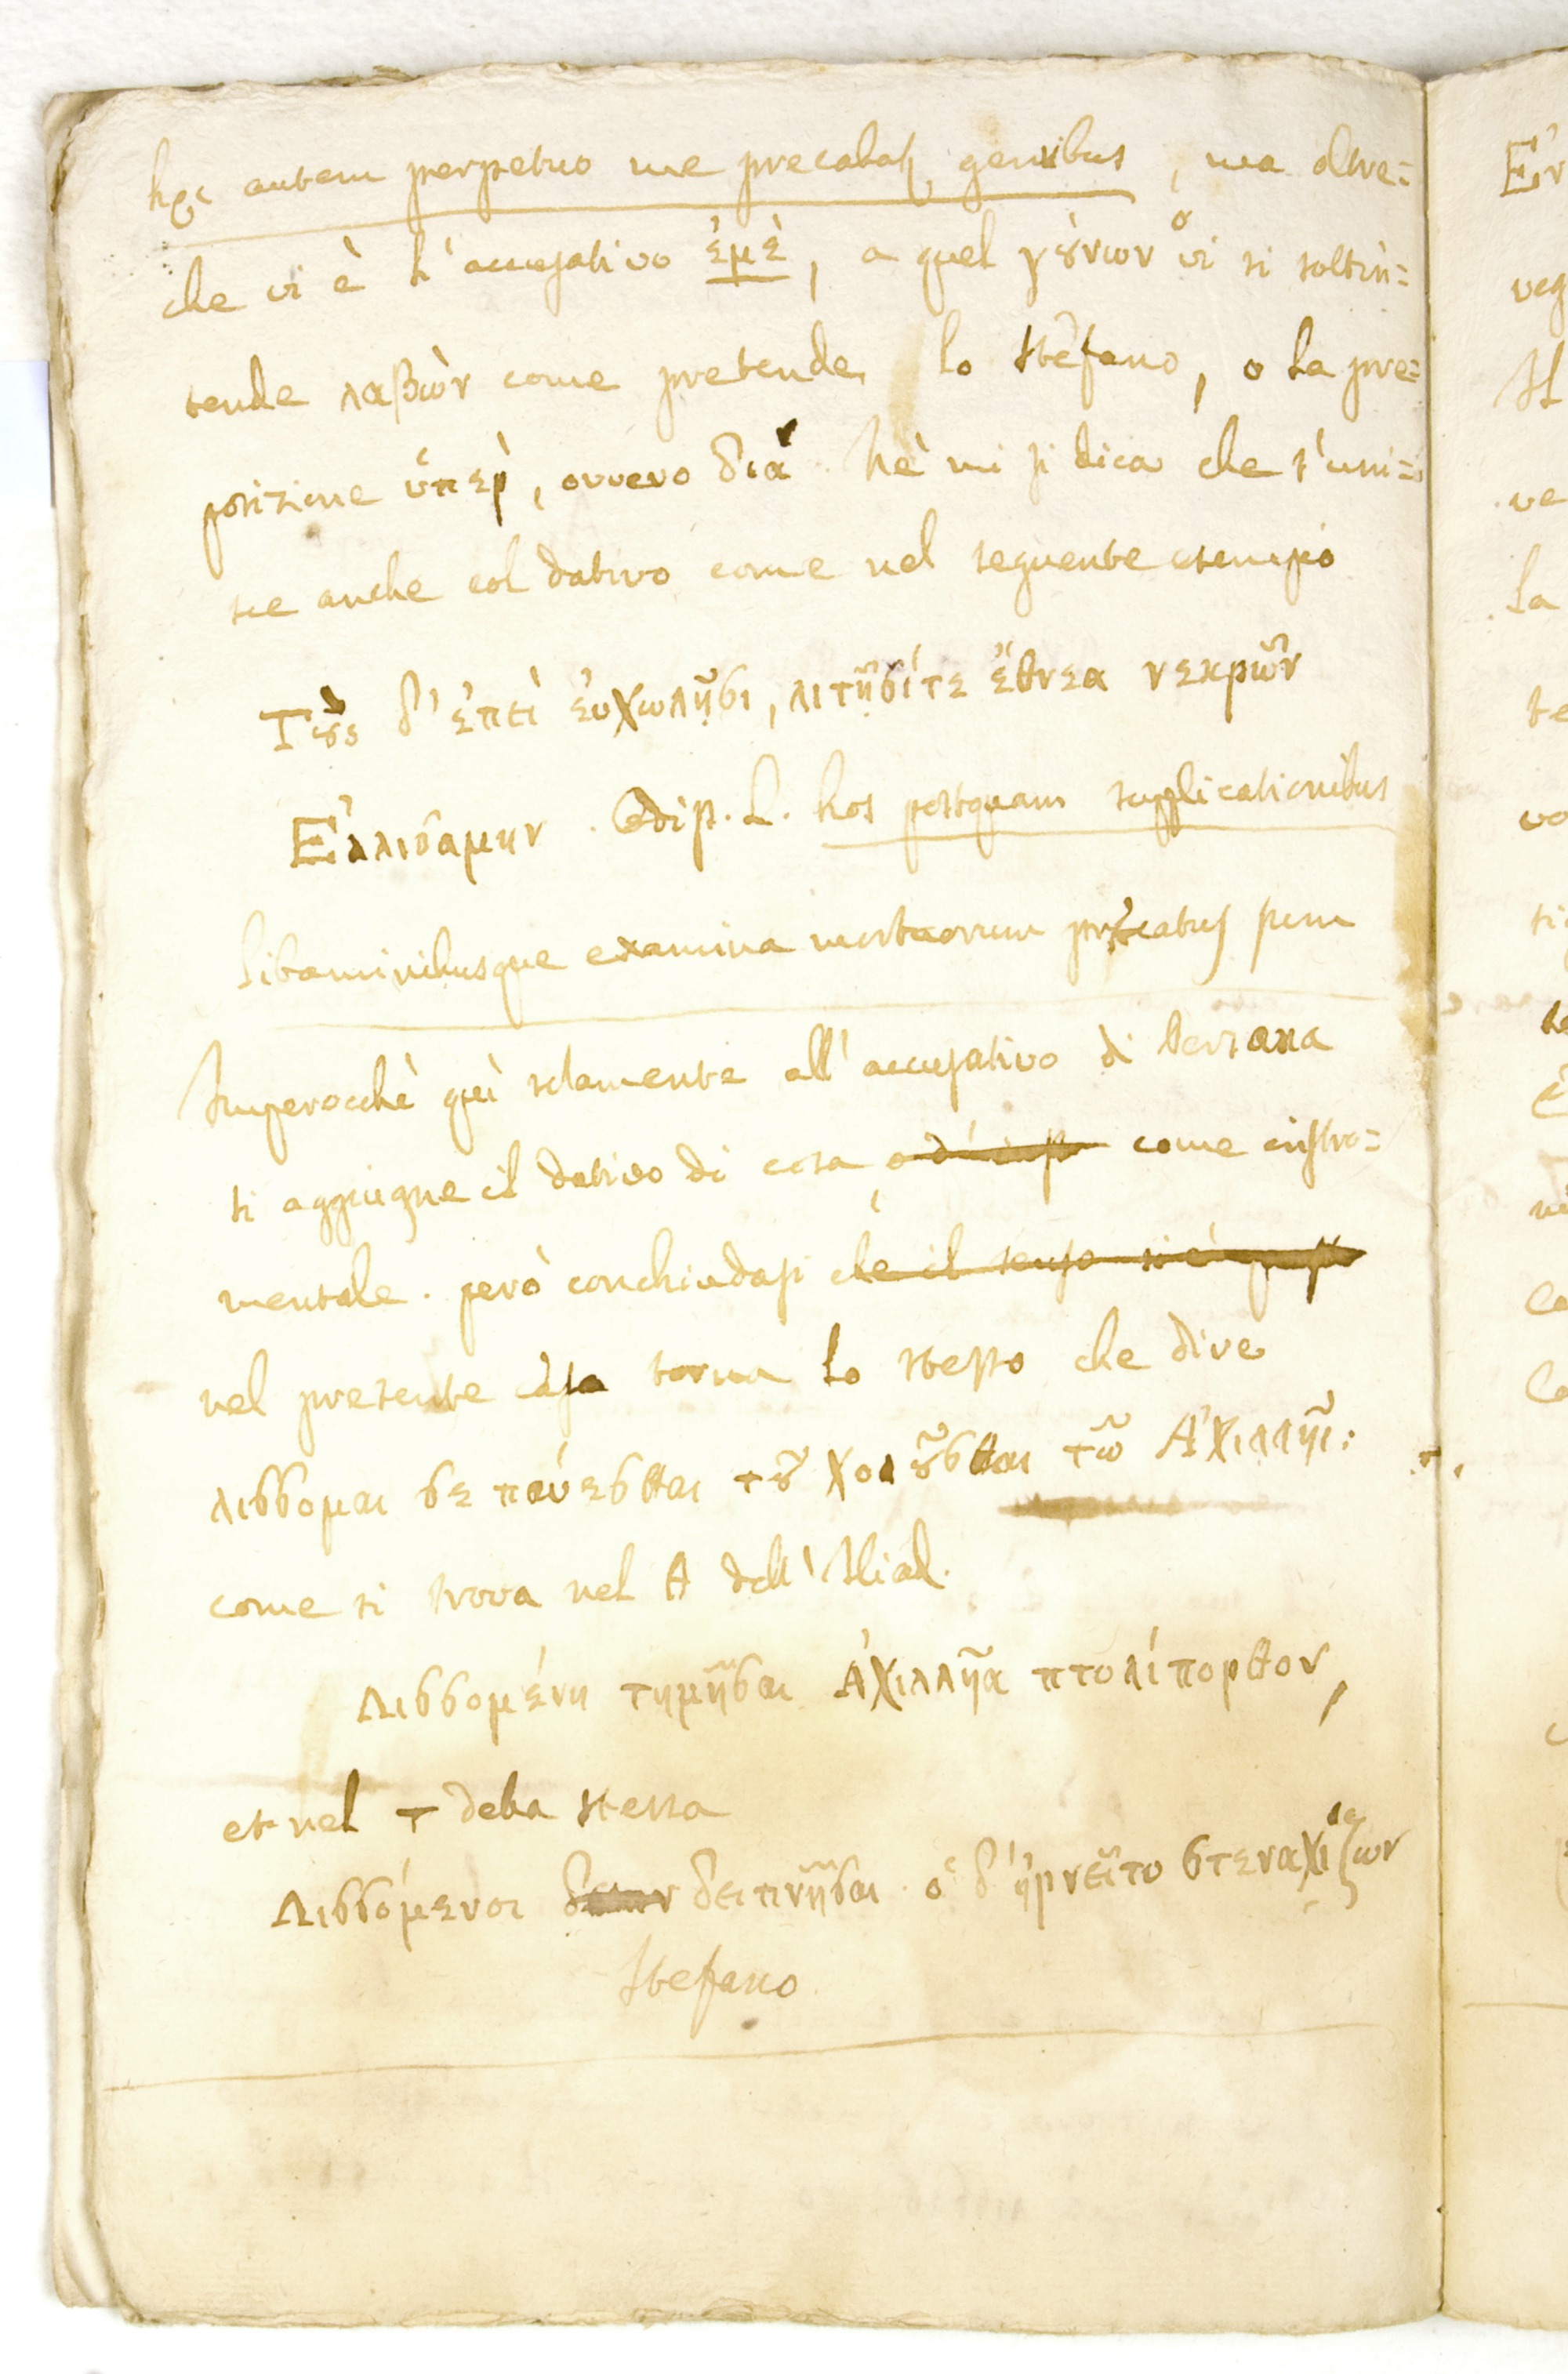 hæc autem perpetuo me precabatur genibus, ma oltre=
che vi è l'accusativo ἐμὲ, a quel γούνων o vi si soltin=
tende λαβὼν come pretende lo Stefano, o la pre=
posizione ὑπὲρ, ovvero διά. Nè mi si dica che s'uni=
sce anche col dativo come nel seguente esempio
Τοὺς δ' ἐπεὶ εὐχωλῇσι, λιτῇσί τε ἔθνεα νεκρῶν
Ἐλλισάμην. Odiss. L. hos postquam supplicationibus
libaminibusque examina mortuorum precatus sum
Imperocchè quì solamente all'accusativo di persona
si aggiugne il dativo di cosa, come instro=
mentale. però conchiudasi che il senso si è
nel presente torna lo stesso che dire
λισσομαι σε παύεσθαι τοῦ χολοῦσθαι τῶ Ἀχιλλῆι:
come si trova nel A dell' Iliad.
Λισσομένη τημῆσαι Ἀχιλλῆα πτολίπορθον,
et nel τ della stessa
Λισσόμενοι δειπνῆσαι. ὁ δ' ἠρνεῖτο στεναχίζων
Stefano